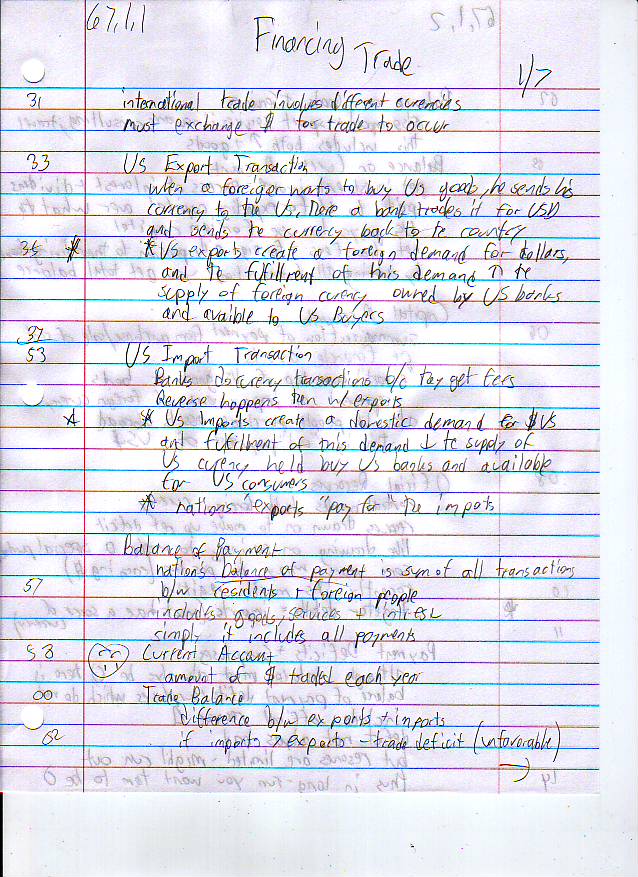 67,1,1
Financing Trade
1/7
31 international trade involves different curencies
must exchange $ for trade to occur
33 US Export Transaction
when a foreigner wants to buy US goods, he sends his
currency to the US, there a bank trades it for USD
and sends the currency back to the country
35 * *US exports create a foreign demand for dollars,
and the fulfillment of this demand ↑ the
supply of foreign curency owned by US banks
and avaible to US Buyers
37
53 US Import Transaction
Banks do currency transactions b/c they get fees
Reverse happens then w/ exports
* * US Imports create a domestic demand for $ US
and fulfillment of this demand ↓ the supply of
US curency held buy US banks and available
for US consumers
* nations exports "pay for" the imports
Balance of Payment
nation's balance of payment is sum of all transactions
57 b/w residents + foreign people
includes goods, services + intrest
simply it includes all payments
58 Current Account
amount of $ traded each year
00 Trade Balance
difference b/w exports + imports
02 if imports > exports - trade deficit (unfavorable)